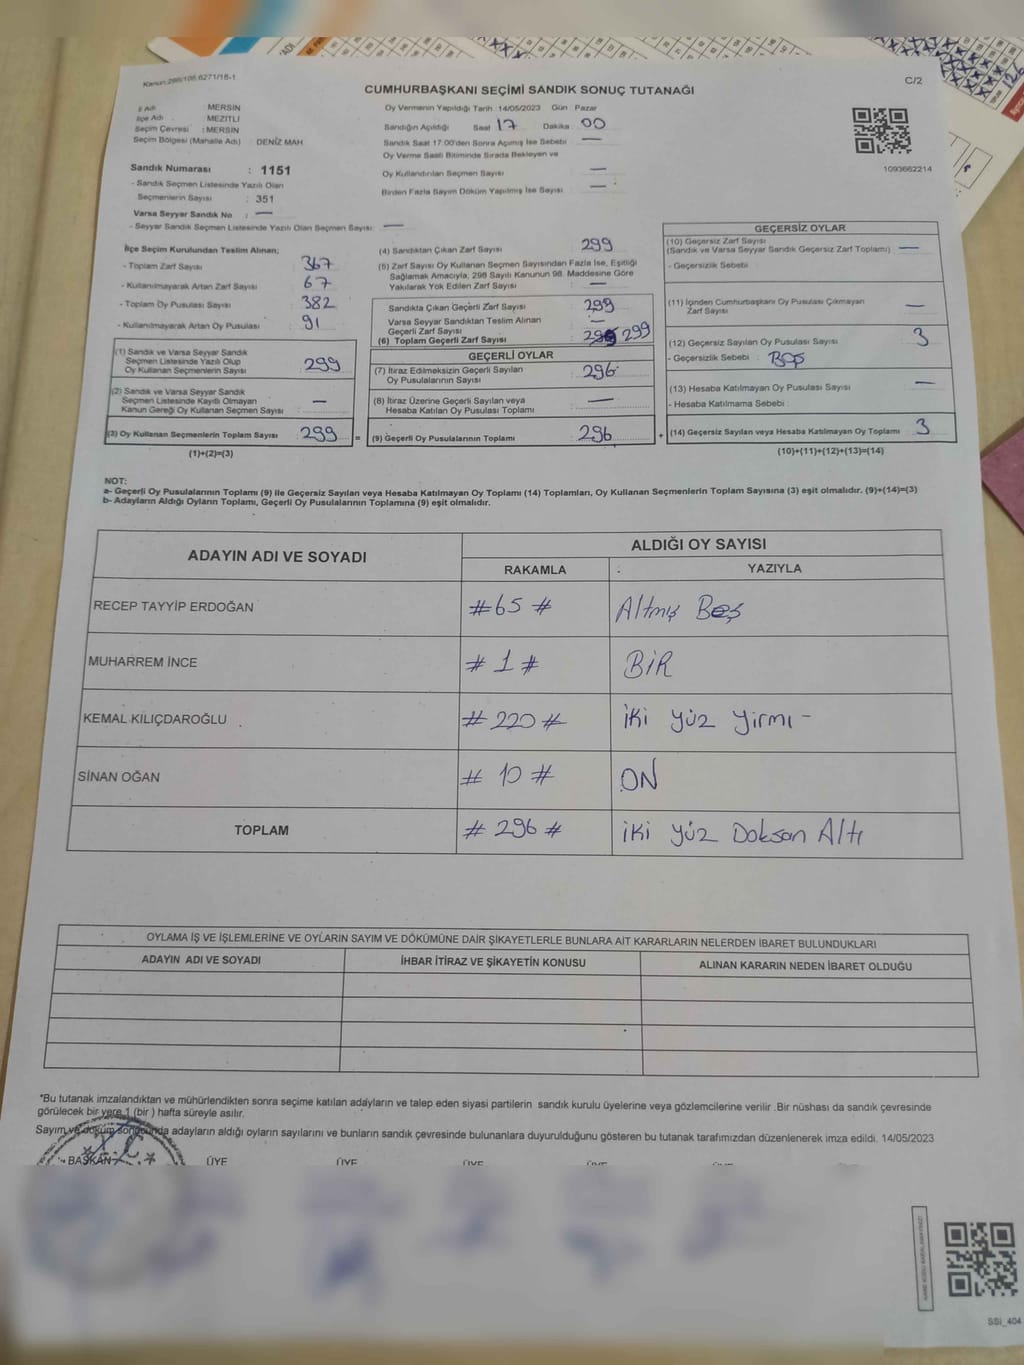 Kanun:298/105,6271/18-1
C/2
CUMHURBAŞKANI SEÇİMİ SANDIK SONUÇ TUTANAĞI
İl Adı : MERSİN
İlçe Adı : MEZİTLİ
Seçim Çevresi : MERSİN
Seçim Bölgesi (Mahalle Adı) DENİZ MAH
Oy Vermenin Yapıldığı Tarih :14/05/2023 Gün : Pazar
Sandığın Açıldığı Saat 17 Dakika 00
Sandık Saat 17:00'den Sonra Açımış İse Sebebi —
Oy Verme Saati Bitiminde Sırada Bekleyen ve
Oy Kullandırılan Seçmen Sayısı —
Birden Fazla Sayım Döküm Yapılmış İse Sayısı —
1093662214
Sandık Numarası : 1151
- Sandık Seçmen Listesinde Yazılı Olan
Seçmenlerin Sayısı : 351
Varsa Seyyar Sandık No : —
- Seyyar Sandık Seçmen Listesinde Yazılı Olan Seçmen Sayısı: —
İlçe Seçim Kurulundan Teslim Alınan;
- Toplam Zarf Sayısı : 367
- Kullanılmayarak Artan Zarf Sayısı : 67
- Toplam Oy Pusulası Sayısı : 382
- Kullanılmayarak Artan Oy Pusulası : 91
(1) Sandık ve Varsa Seyyar Sandık
Seçmen Listesinde Yazılı Olup
Oy Kullanan Seçmenlerin Sayısı : 299
(2) Sandık ve Varsa Seyyar Sandık
Seçmen Listesinde Kayıtlı Olmayan
Kanun Gereği Oy Kullanan Seçmen Sayısı : —
(3) Oy Kullanan Seçmenlerin Toplam Sayısı : 299
(1)+(2)=(3)
=
(4) Sandıktan Çıkan Zarf Sayısı 299
(5) Zarf Sayısı Oy Kullanan Seçmen Sayısından Fazla İse, Eşitliği
Sağlamak Amacıyla, 298 Sayılı Kanunun 98. Maddesine Göre
Yakılarak Yok Edilen Zarf Sayısı : —
Sandıkta Çıkan Geçerli Zarf Sayısı : 299
Varsa Seyyar Sandıktan Teslim Alınan
Geçerli Zarf Sayısı : —
(6) Toplam Geçerli Zarf Sayısı : 299
GEÇERLİ OYLAR
(7) İtiraz Edilmeksizin Geçerli Sayılan
Oy Pusulalarının Sayısı : 296
(8) İtiraz Üzerine Geçerli Sayılan veya
Hesaba Katılan Oy Pusulası Toplamı : —
(9) Geçerli Oy Pusulalarının Toplamı : 296
+
GEÇERSİZ OYLAR
(10) Geçersiz Zarf Sayısı
(Sandık ve Varsa Seyyar Sandık Geçersiz Zarf Toplamı) : —
- Geçersizlik Sebebi
(11) İçinden Cumhurbaşkanı Oy Pusulası Çıkmayan
Zarf Sayısı —
(12) Geçersiz Sayılan Oy Pusulası Sayısı : 3
- Geçersizlik Sebebi : BOŞ
(13) Hesaba Katılmayan Oy Pusulası Sayısı : —
- Hesaba Katılmama Sebebi :
(14) Geçersiz Sayılan veya Hesaba Katılmayan Oy Toplamı : 3
(10)+(11)+(12)+(13)=(14)
NOT:
a- Geçerli Oy Pusulalarının Toplamı (9) ile Geçersiz Sayılan veya Hesaba Katılmayan Oy Toplamı (14) Toplamları, Oy Kullanan Seçmenlerin Toplam Sayısına (3) eşit olmalıdır. (9)+(14)=(3)
b- Adayların Aldığı Oyların Toplamı, Geçerli Oy Pusulalarının Toplamına (9) eşit olmalıdır.
ADAYIN ADI VE SOYADI
ALDIĞI OY SAYISI
RAKAMLA YAZIYLA
RECEP TAYYİP ERDOĞAN #65# Altmış Beş
MUHARREM İNCE #1# BİR
KEMAL KILIÇDAROĞLU #220# iki yüz yirmi -
SİNAN OĞAN #10# ON
TOPLAM #296# iki yüz Doksan Altı
OYLAMA İŞ VE İŞLEMLERİNE VE OYLARIN SAYIM VE DÖKÜMÜNE DAİR ŞİKAYETLERLE BUNLARA AİT KARARLARIN NELERDEN İBARET BULUNDUKLARI
ADAYIN ADI VE SOYADI İHBAR İTİRAZ VE ŞİKAYETİN KONUSU ALINAN KARARIN NEDEN İBARET OLDUĞU
*Bu tutanak imzalandıktan ve mühürlendikten sonra seçime katılan adayların ve talep eden siyasi partilerin sandık kurulu üyelerine veya gözlemcilerine verilir .Bir nüshası da sandık çevresinde
görülecek bir yere 1 (bir ) hafta süreyle asılır.
Sayım ve döküm sonucunda adayların aldığı oyların sayılarını ve bunların sandık çevresinde bulunanlara duyurulduğunu gösteren bu tutanak tarafımızdan düzenlenerek imza edildi. 14/05/2023
T.C.
BAŞKAN ÜYE ÜYE ÜYE ÜYE
SSİ_404